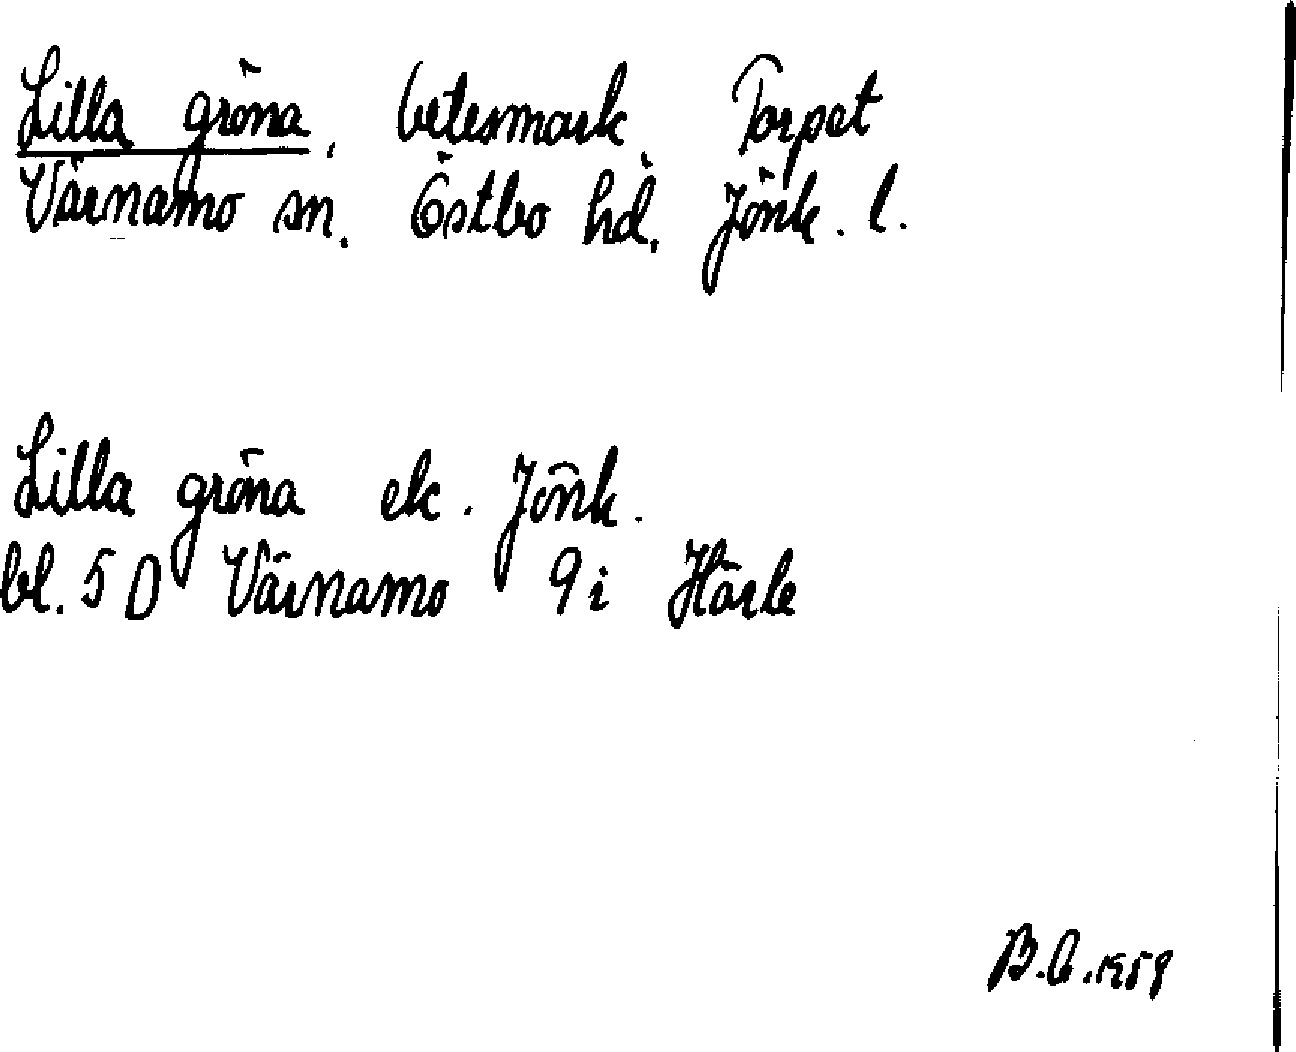 Lilla gröna, betesmark, Torpet
Värnamo sn, Östbo hd, Jönk. l.
Lilla gröna ek. Jönk.
bl. 5 D Värnamo 9 i Härle
B.G. 1959